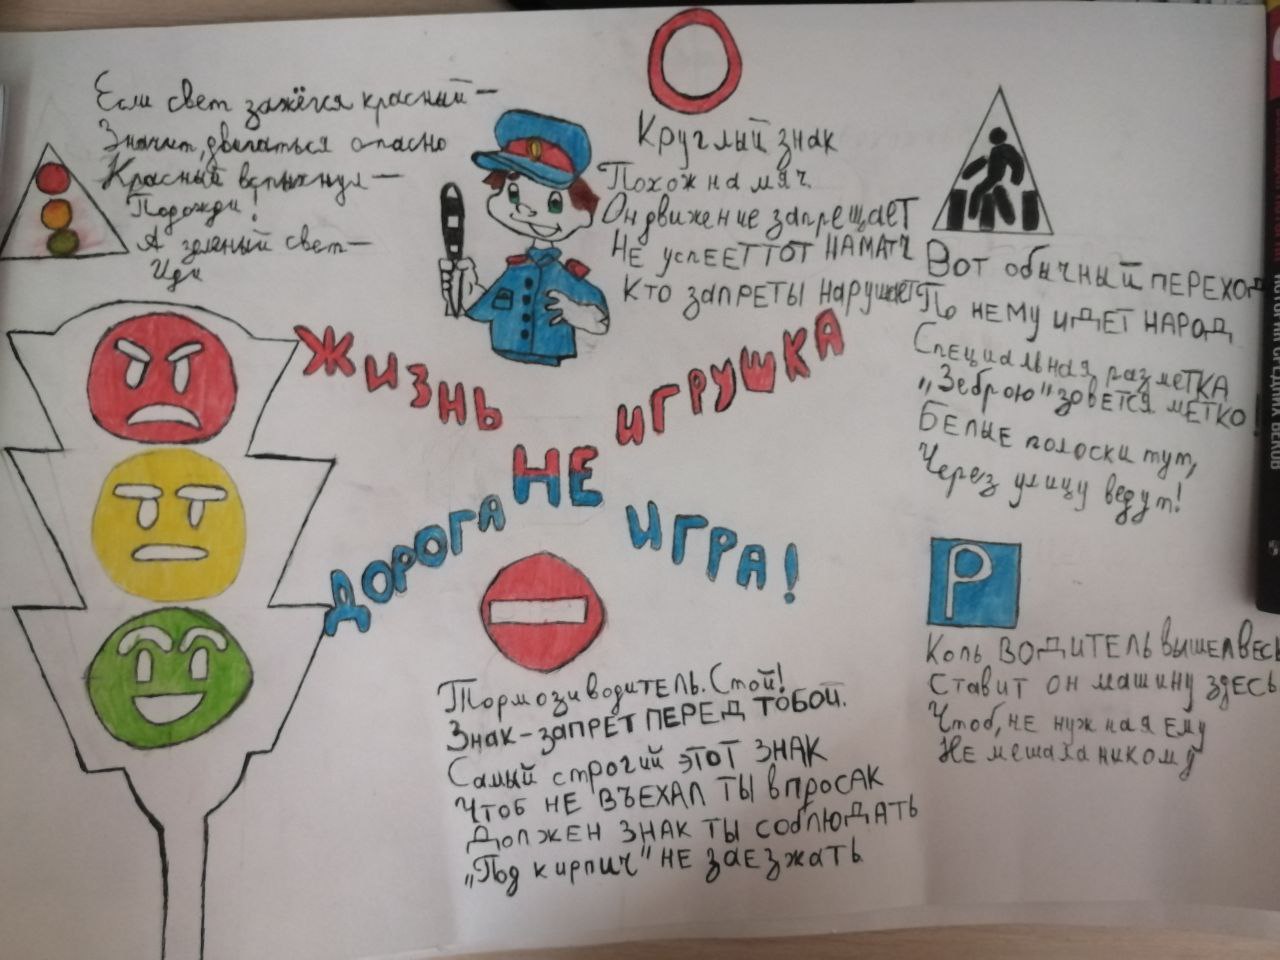 Если свет зажёгся красный—
Значит, двигаться опасно
Красный вспыхнул—
Подожди!
А зеленый свет—
Иди
Круглый знак
Похож на мяч.
Он движение запрещает
Не успеет тот на матч
Кто запреты нарушает
Вот обычный переход
По нему идет народ
Специальная разметка
„Зеброю" зовется метко!
Белые полоски тут,
Через улицу ведут!
ЖИЗНЬ
НЕ
ИГРУШКА
ДОРОГА
ИГРА!
Тормози водитель. Стой!
Знак-запрет перед тобой.
Самый строгий этот знак
Чтоб не въехал ты впросак
Должен знак ты соблюдать
„Под кирпич" не заезжать
P
Коль водитель вышел весь
Ставит он машину здесь
Чтоб, не нужная ему
Не мешала никому
СРЕДНИХ ВЕКОВ